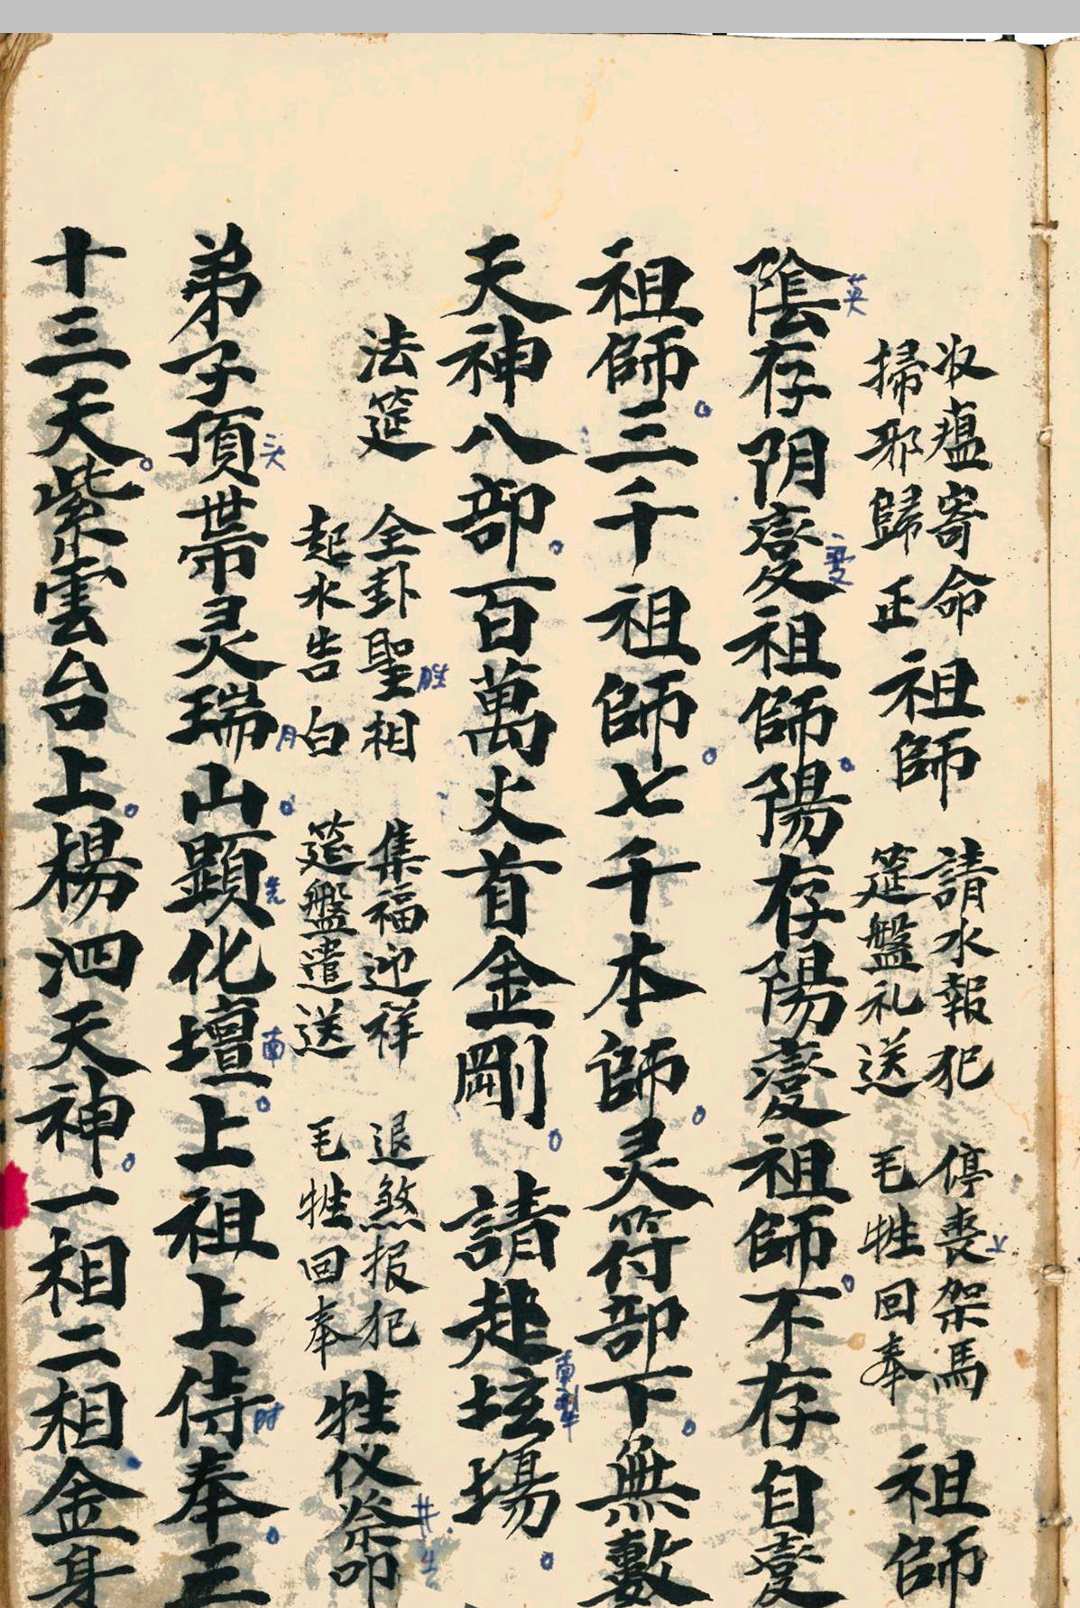 收瘟寄命 掃邪歸正 祖師 請水報犯 筵盤礼送 停喪架馬 毛牲回奉 祖師
陰存阴变祖師陽存陽变祖師不存自变
祖師三千祖師七千本師灵符部下無數
天神八部百萬火首金剛 請赴坛場
法筵 全卦聖相 起水告白 集福迎祥 筵盤遣送 退煞报犯 毛牲回奉 牲仪祭
弟子頂帯灵瑞山顕化壇上祖上侍奉三
十三天紫雲台上楊泗天神一相二相金身